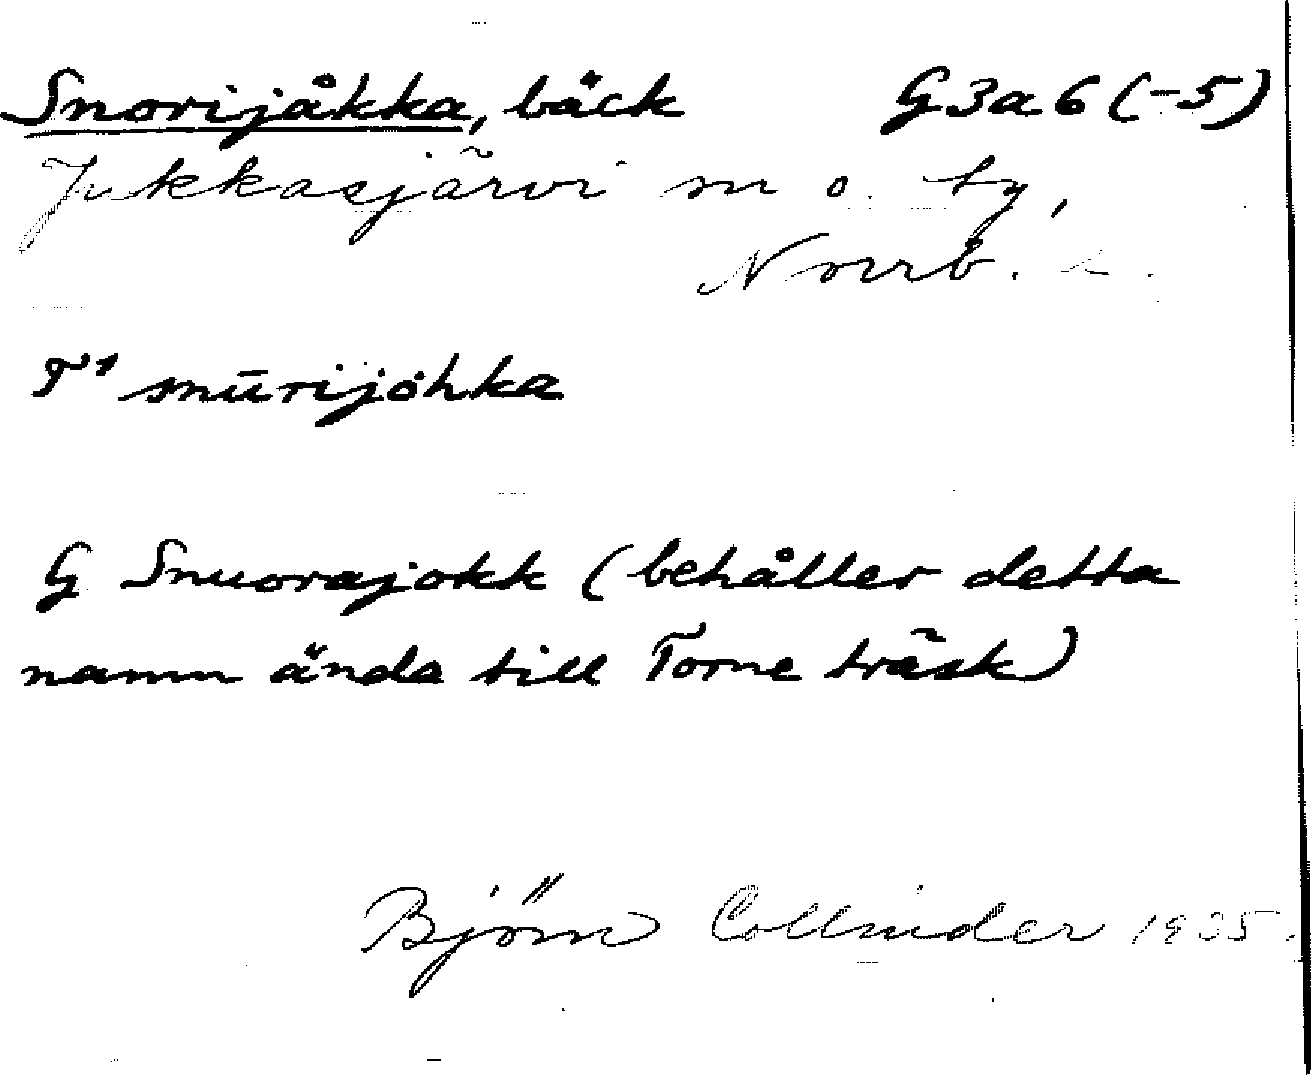 Snorijåkka, bäck G3a6(-5)
Jukkasjärvi sn o. ty,
Norrb.
T¹ snūrijȯhka
G Snuorajokk (behåller detta
namn ända till Torne träsk)
Björn Collinder 1935.